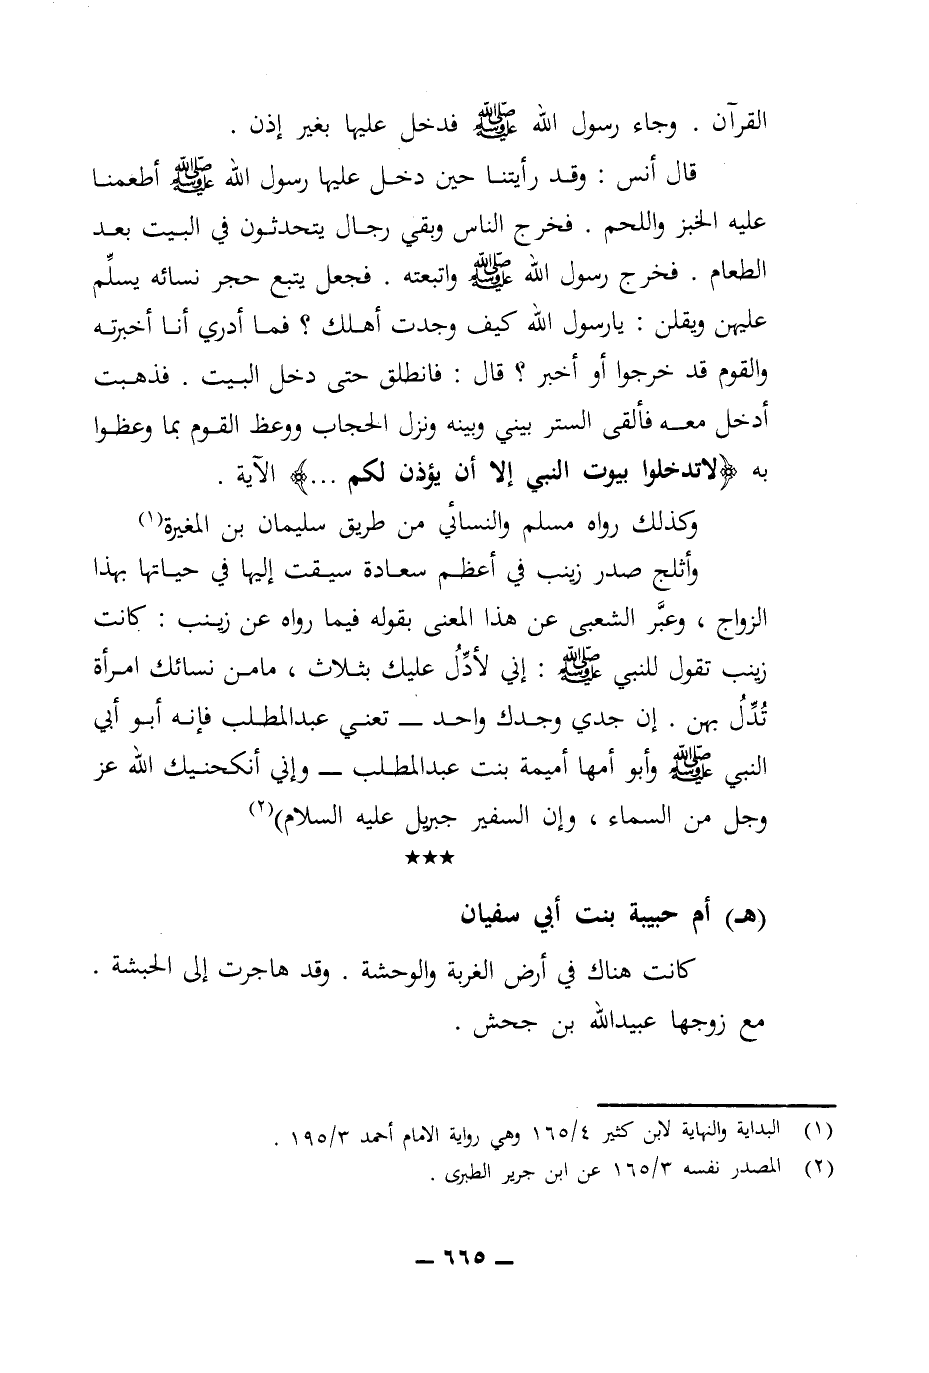 القرآن . وجاء رسول الله ﷺ فدخل عليها بغير إذن .
قال أنس : وقد رأيتنا حين دخل عليها رسول الله ﷺ أطعمنا
عليه الخبز واللحم . فخرج الناس وبقي رجال يتحدثون في البيت بعد
الطعام . فخرج رسول الله ﷺ واتبعته . فجعل يتبع حجر نسائه يسلِّم
عليهن ويقلن : يارسول الله كيف وجدت أهلك ؟ فما أدري أنا أخبرته
والقوم قد خرجوا أو أخبر ؟ قال : فانطلق حتى دخل البيت . فذهبت
أدخل معه فألقى الستر بيني وبينه ونزل الحجاب ووعظ القوم بما وعظوا
به ﴿لاتدخلوا بيوت النبي إلا أن يؤذن لكم ...﴾ الآية .
وكذلك رواه مسلم والنسائي من طريق سليمان بن المغيرة(١)
وأثلج صدر زينب في أعظم سعادة سيقت إليها في حياتها بهذا
الزواج ، وعبَّر الشعبى عن هذا المعنى بقوله فيما رواه عن زينب : كانت
زينب تقول للنبي ﷺ : إني لأدِّلُ عليك بثلاث ، مامن نسائك امرأة
تُدِّلُ بهن . إن جدي وجدك واحد ـ تعني عبدالمطلب فإنه أبو أبي
النبي ﷺ وأبو أمها أميمة بنت عبدالمطلب ـ وإني أنكحنيك الله عز
وجل من السماء ، وإن السفير جبريل عليه السلام)(٢)
★★★
(هـ) أم حبيبة بنت أبي سفيان
كانت هناك في أرض الغربة والوحشة . وقد هاجرت إلى الحبشة .
مع زوجها عبيدالله بن جحش .
(١) البداية والنهاية لابن كثير ١٦٥/٤ وهي رواية الامام أحمد ١٩٥/٣ .
(٢) المصدر نفسه ١٦٥/٣ عن ابن جرير الطبرى .
ـ ٦٦٥ ـ